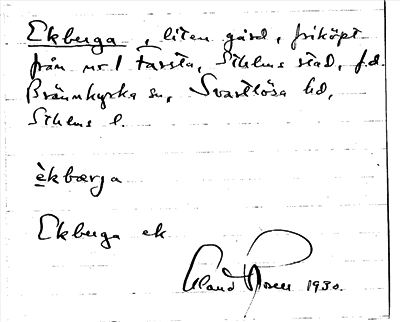 Ekberga, liten gård, friköpt
från nr 1 Farsta, Sthlms stad, f.d.
Brännkyrka sn, Svartlösa hd,
Sthlms l.
èkbærja
Ekberga ek
1930.